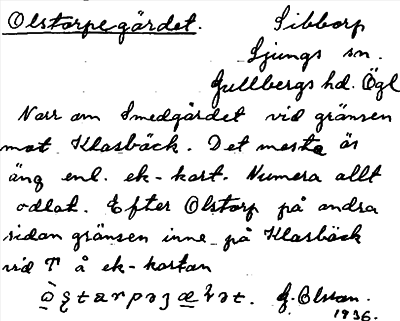 Olstorpegärdet. Sibborp
Ljungs sn.
Gullbergs hd. Ögl
Norr om Smedgärdet vid gränsen
mot Klasbäck. Det mesta är
äng enl. ek-kart. Numera allt
odlat. Efter Olstorp på andra
sidan gränsen inne på Klasbäck
vid T å ek-kartan
1936.